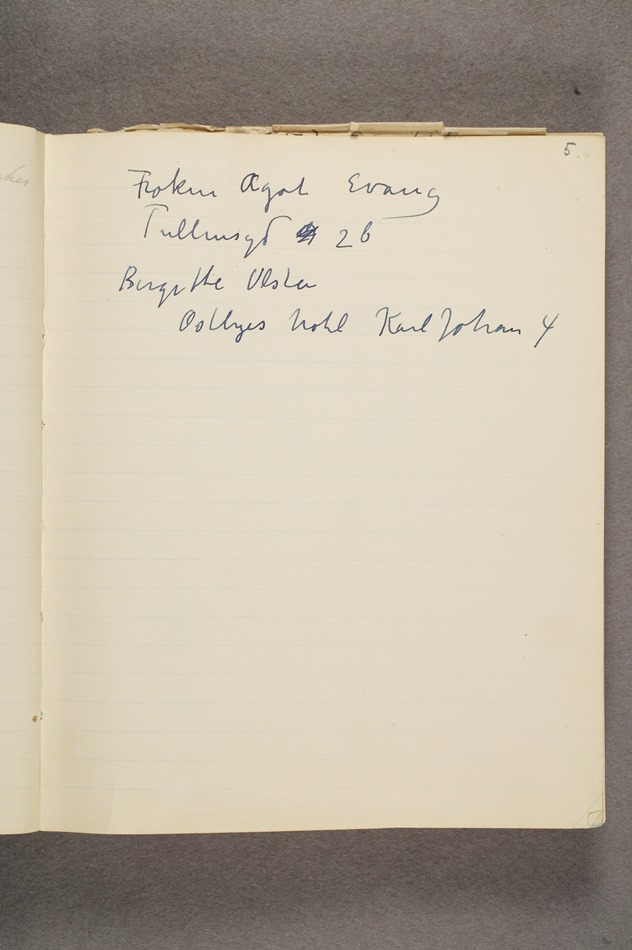 5.
Frøken Agot Evang
Tullinsgd 2 b
Birgitte Olsen
Østbyes hotel Karl Johan 4